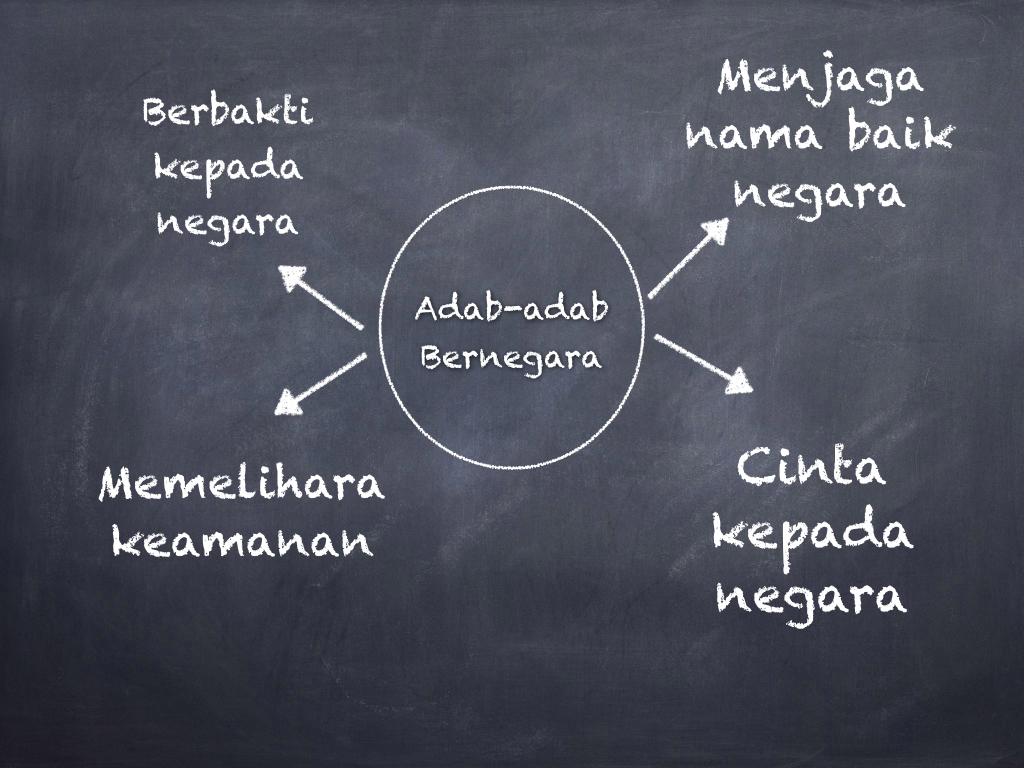 Berbakti
kepada
negara
Menjaga
nama baik
negara
Adab-adab
Bernegara
Memelihara
keamanan
Cinta
kepada
negara